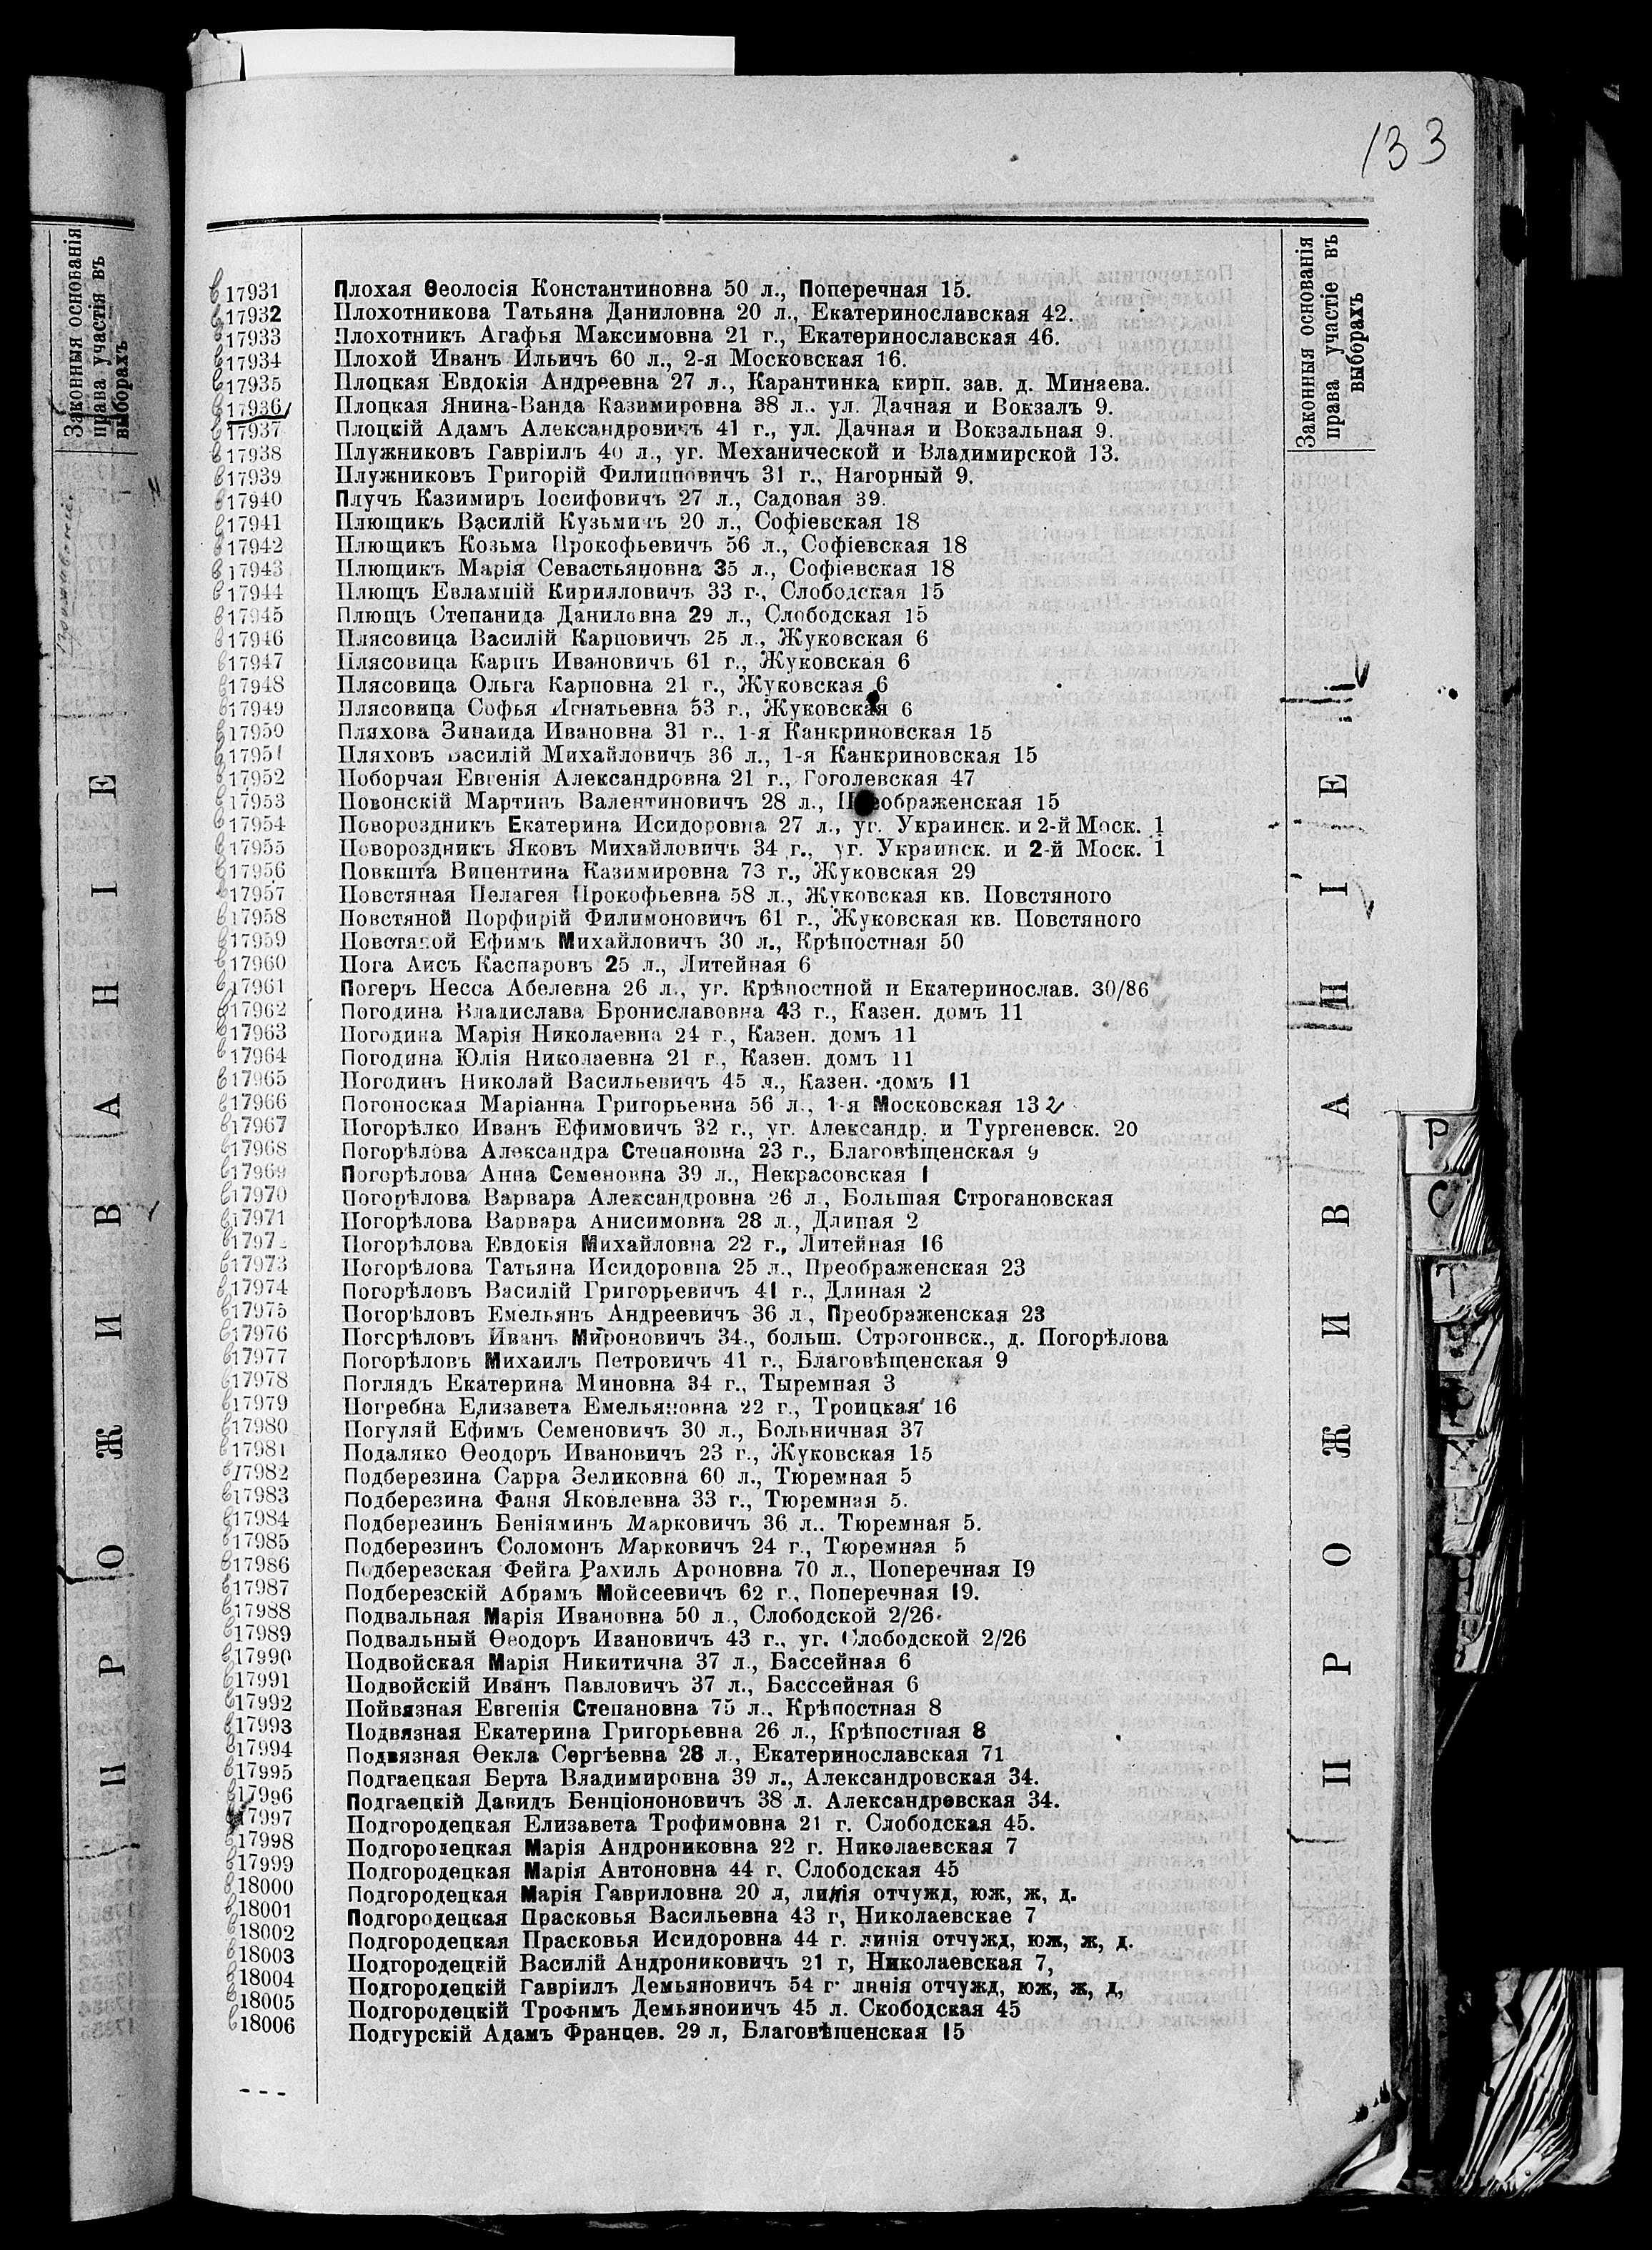 133
Законныя основанія
права участіе въ
выборахъ
ПРОЖИВАНІЕ
17931 Плохая Ѳеолосія Константиновна 50 л., Поперечная 15.
17932 Плохотникова Татьяна Даниловна 20 л., Екатеринославская 42.
17933 Плохотникъ Агафья Максимовна 21 г., Екатеринославская 46.
17934 Плохой Иванъ Ильичъ 60 л., 2-я Московская 16.
17935 Плоцкая Евдокія Андреевна 27 л., Карантинка кирп. зав. д. Минаева.
17936 Плоцкая Янина-Ванда Казимировна 38 л.. ул. Дачная и Вокзалъ 9.
17937 Плоцкій Адамъ Александровичъ 41 г., ул. Дачная и Вокзальная 9.
17938 Плужниковъ Гавріилъ 40 л., уг. Механической и Владимирской 13.
17939 Плужниковъ Григорій Филипповичъ 31 г., Нагорный 9.
17940 Плучъ Казимиръ Іосифовичъ 27 л., Садовая 39.
17941 Плющикъ Василій Кузьмичъ 20 л., Софіевская 18
17942 Плющикъ Козьма Прокофьевичъ 56 л., Софіевская 18
17943 Плющикъ Марія Севастьяновна 35 л., Софіевская 18
17944 Плющъ Евлампій Кирилловичъ 33 г., Слободская 15
17945 Плющъ Степанида Даниловна 29 л., Слободская 15
17946 Плясовица Василій Карповичъ 25 л., Жуковская 6
17947 Плясовица Карпъ Ивановичъ 61 г., Жуковская 6
17948 Плясовица Ольга Карповна 21 г., Жуковская 6
17949 Плясовица Софья Игнатьевна 53 г., Жуковская 6
17950 Пляхова Зинаида Ивановна 31 г.. 1-я Канкриновская 15
17951 Пляховъ Василій Михайловичъ 36 л., 1-я Канкриновская 15
17952 Поборчая Евгенія Александровна 21 г., Гоголевская 47
17953 Повонскій Мартинъ Валентиновичъ 28 л., Преображенская 15
17954 Повороздникъ Екатерина Исидоровна 27 л., уг. Украинск. и 2-й Моск. 1
17955 Повороздникъ Яковъ Михайловичъ 34 г., уг. Украинск. и 2-й Моск. 1
17956 Повкшта Винентина Казимировна 73 г., Жуковская 29
17957 Повстяная Пелагея Прокофьевна 58 л., Жуковская кв. Повстяного
17958 Повстяной Порфирій Филимоновичъ 61 г., Жуковская кв. Повстяного
17959 Повстяной Ефимъ Михайловичъ 30 л., Крѣпостная 50
17960 Пога Аисъ Каспаровъ 25 л., Литейная 6
17961 Погеръ Несса Абелевна 26 л., уг. Крѣпостной и Екатеринослав. 30/86
17962 Погодина Владислава Брониславовна 43 г., Казен. домъ 11
17963 Погодина Марія Николаевна 24 г., Казен. домъ 11
17964 Погодина Юлія Николаевна 21 г., Казен. домъ 11
17965 Погодинъ Николай Васильевичъ 45 л., Казен. домъ 11
17966 Погоноская Маріанна Григорьевна 56 л., 1-я Московская 132
17967 Погорѣлко Иванъ Ефимовичъ 32 г., уг. Александр. и Тургеневск. 20
17968 Погорѣлова Александра Степановна 23 г., Благовѣщенская 9
17969 Погорѣлова Анна Семеновна 39 л., Некрасовская 1
17970 Погорѣлова Варвара Александровна 26 л., Большая Строгановская
17971 Погорѣлова Варвара Анисимовна 28 л., Длиная 2
1797 Погорѣлова Евдокія Михайловна 22 г., Литейная 16
17973 Погорѣлова Татьяна Исидоровна 25 л., Преображенская 23
17974 Погорѣловъ Василій Григорьевичъ 41 г., Длиная 2
17975 Погорѣловъ Емельянъ Андреевичъ 36 л., Преображенская 23
17976 Погсрѣловъ Иванъ Мироновичъ 34., больш. Строгонвск., д. Погорѣлова
17977 Погорѣловъ Михаилъ Петровичъ 41 г., Благовѣщенская 9
17978 Поглядъ Екатерина Миновна 34 г., Тыремная 3
17979 Погребна Елизавета Емельяновна 22 г., Троицкая 16
17980 Погуляй Ефимъ Семеновичъ 30 л., Больничная 37
17981 Подаляко Ѳеодоръ Ивановичъ 23 г., Жуковская 15
17982 Подберезина Сарра Зеликовна 60 л., Тюремная 5
17983 Подберезина Фаня Яковлевна 33 г., Тюремная 5.
17984 Подберезинъ Беніяминъ Марковичъ 36 л.. Тюремная 5.
17985 Подберезинъ Соломонъ Марковичъ 24 г., Тюремная 5
17986 Подберезская Фейга Рахиль Ароновна 70 л., Поперечная 19
17987 Подберезскій Абрамъ Мойсеевичъ 62 г., Поперечная 19.
17988 Подвальная Марія Ивановна 50 л., Слободской 2/26.
17989 Подвальный Ѳеодоръ Ивановичъ 43 г., уг. Слободской 2/26
17990 Подвойская Марія Никитична 37 л., Бассейная 6
17991 Подвойскій Иванъ Павловичъ 37 л., Басссейная 6
17992 Пойвязная Евгенія Степановна 75 л., Крѣпостная 8
17993 Подвязная Екатерина Григорьевна 26 л., Крѣпостная 8
17994 Подвязная Ѳекла Сергѣевна 28 л., Екатеринославская 71
17995 Подгаецкая Берта Владимировна 39 л., Александровская 34.
17996 Подгаецкій Давидъ Бенціононовичъ 38 л. Александровская 34.
17997 Подгородецкая Елизавета Трофимовна 21 г. Слободская 45.
17998 Подгородецкая Марія Андрониковна 22 г. Николаевская 7
17999 Подгородецкая Марія Антоновна 44 г. Слободская 45
18000 Подгородецкая Марія Гавриловна 20 л, линія отчужд, юж, ж, д.
18001 Подгородецкая Прасковья Васильевна 43 г, Николаевскае 7
18002 Подгородецкая Прасковья Исидоровна 44 г. линія отчужд, юж, ж, д.
18003 Подгородецкій Василій Андрониковичъ 21 г, Николаевская 7,
18004 Подгородецкій Гавріилъ Демьяновичъ 54 г. линія отчужд, юж, ж, д,
18005 Подгородецкій Трофимъ Демьяноничъ 45 л. Скободская 45
18006 Подгурскій Адамъ Францев. 29 л, Благовѣщенская 15
- - -
Законныя основанія
права участіе въ
выборахъ
ПРОЖИВАНІЕ
Р
С
Т